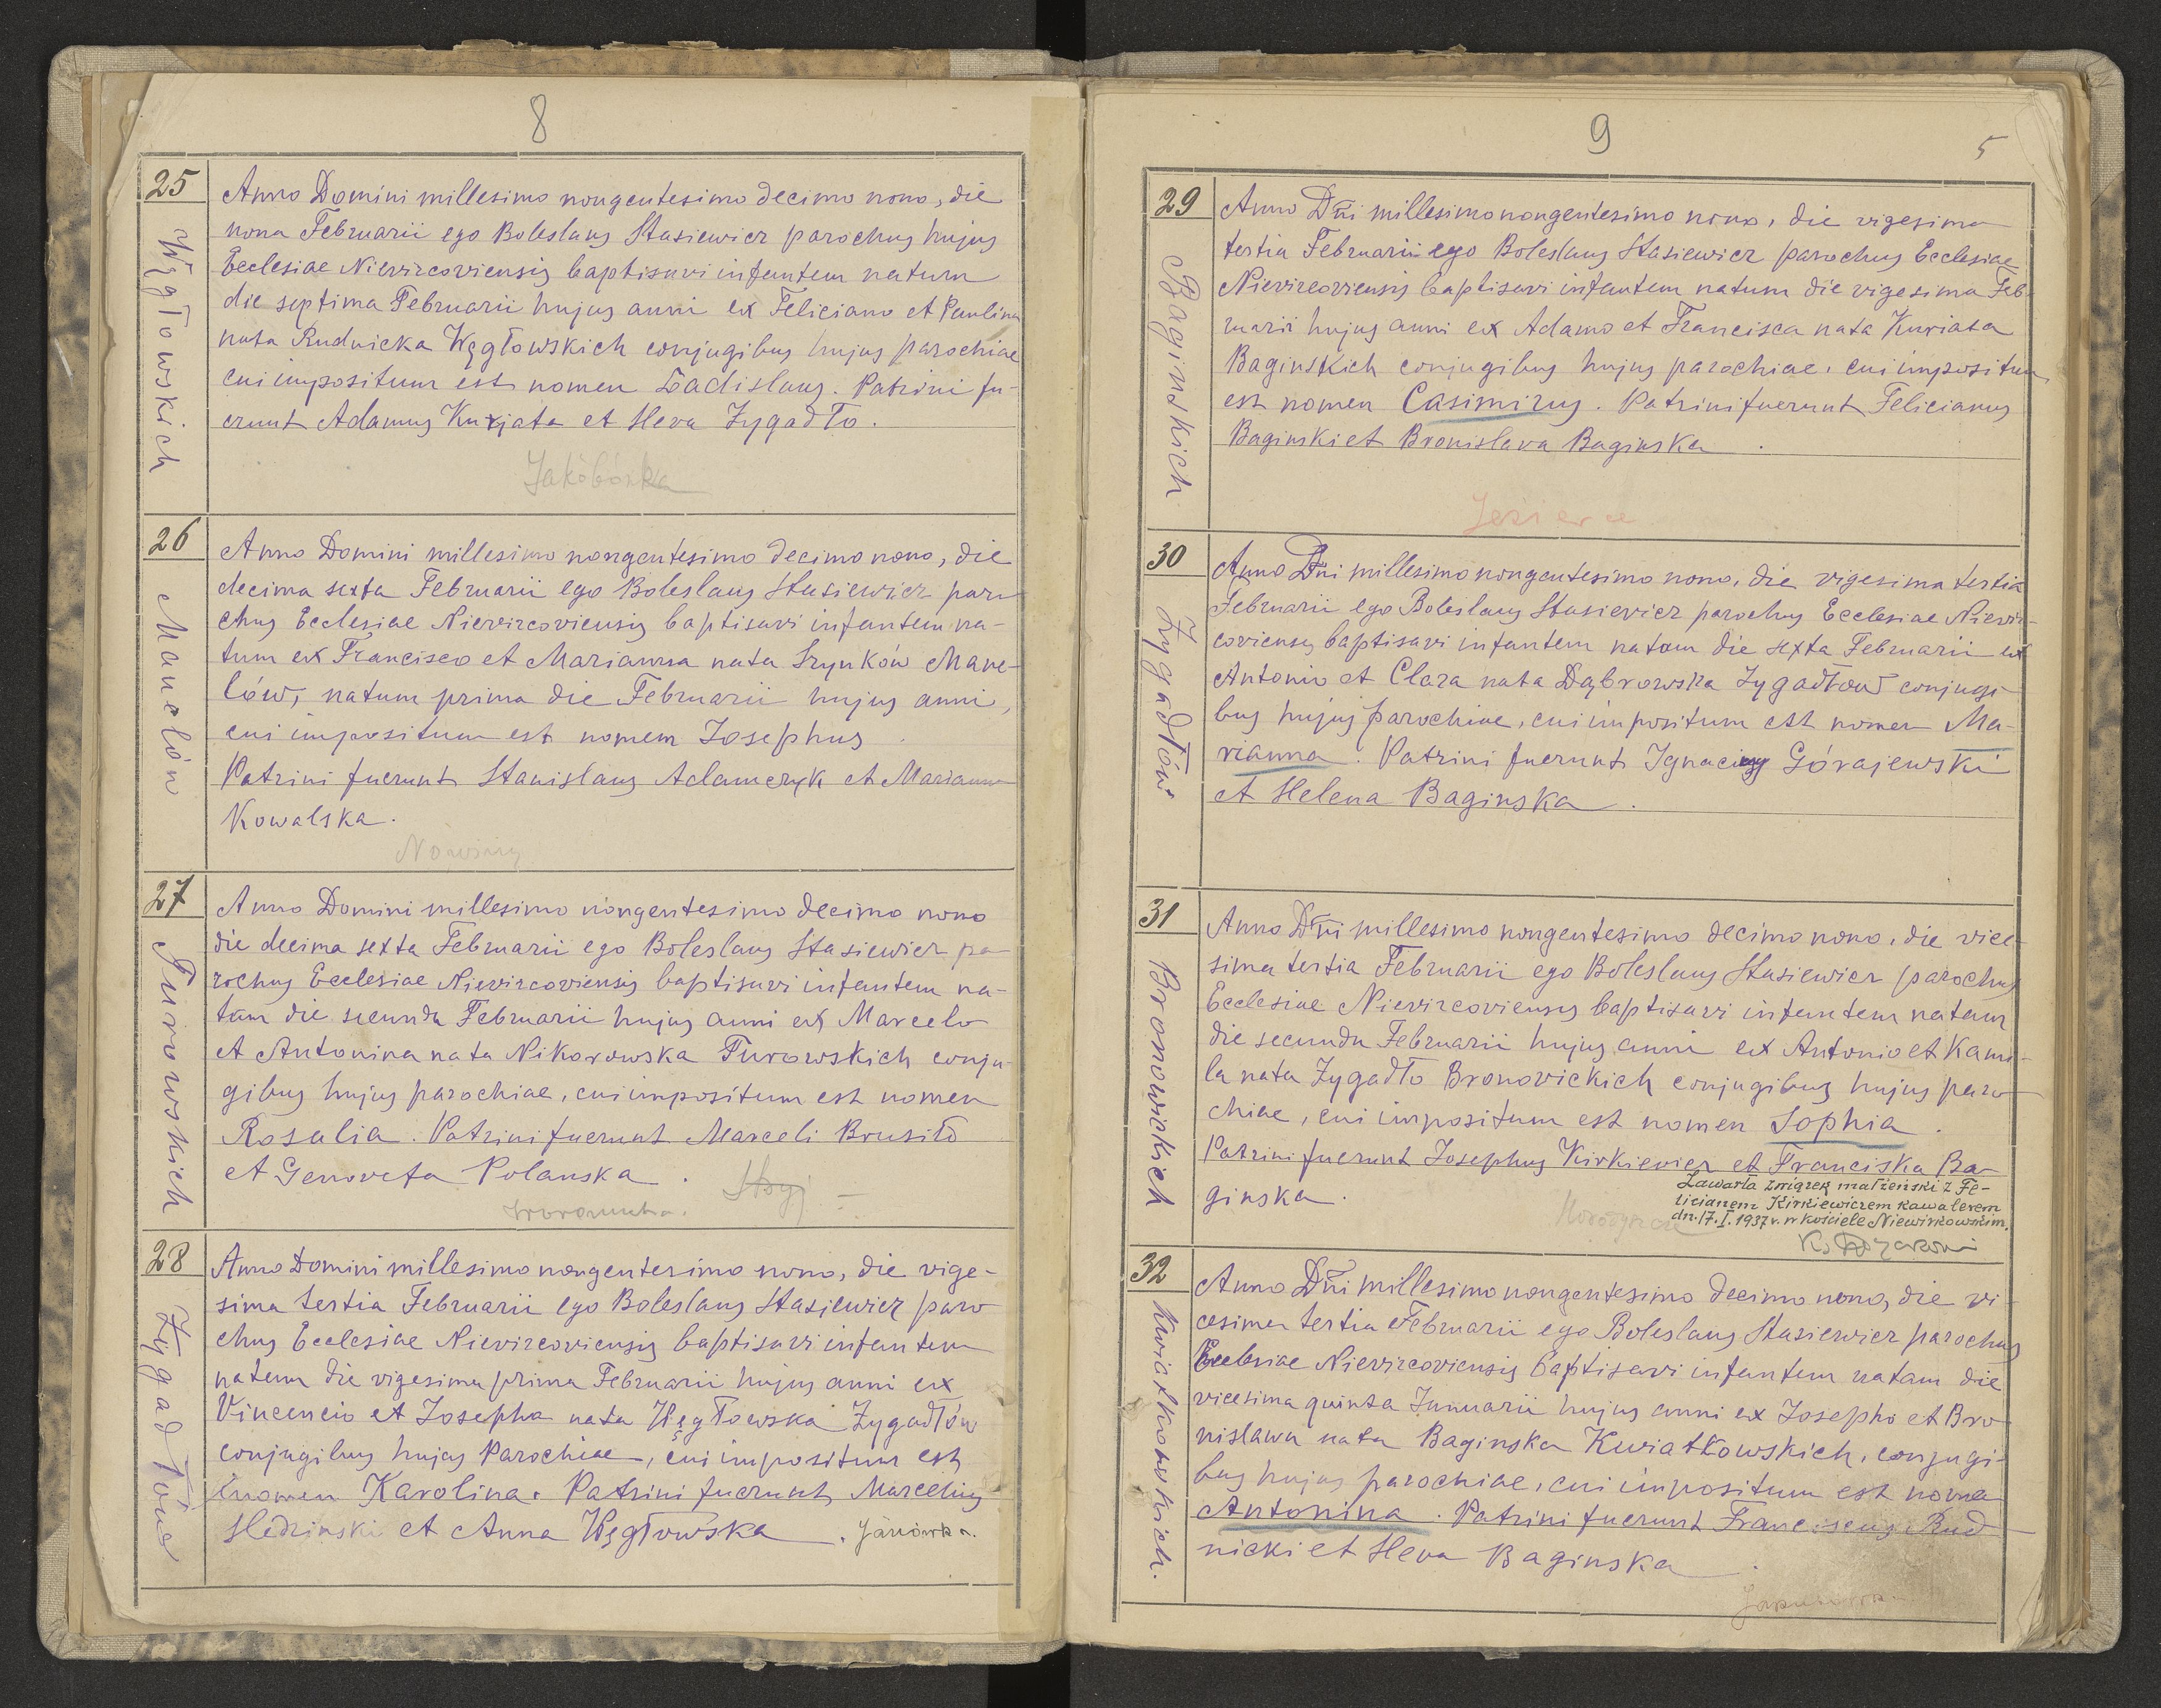 8
25
Węgłowskich
Anno Domini millesimo nongentesimo decimo nono, die
nona Februarii ego Boleslaus Stasiewicz parochus hujus
Ecclesiae Nievircoviensis baptisavi infantem natum
die septima Februarii hujus anni ex Feliciano et Paulina
nata Rudnicka Węgłowskich conjugibus hujus parochiae
cui impositum est nomen Ladislaus. Patrini fu-
erunt Adamus Kurjata et Heva Zygadło.
Jakóbówka
26
Manelów
Anno Domini millesimo nongentesimo decimo nono, die
decima sexta Februarii ego Boleslaus Stasiewicz paro
chus Ecclesiae Nievircoviensis baptisavi infantem na-
tum ex Francisco et Marianna nata Szynków Mane-
lów, natum prima die Februarii hujus anni,
cui impositum est nomem Josephus.
Patrini fuerunt Stanislaus Adamczyk et Marianna
Kowalska.
Nowiny
27
Turowskich
Anno Domini millesimo nongentesimo decimo nono
die decima sexta Februarii ego Boleslaus Stasiewicz pa-
rochus Ecclesiae Nievircoviensis baptisavi infantem na-
tam die secunda Februarii hujus anni ex Marcelo
et Antonina nata Nikorowska Turowskich conju-
gibus hujus parochiae, cui impositum est nomen
Rosalia. Patrini fuerunt Marceli Brusiło
et Genovefa Polanska.
28
Zygadłów
Anno Domini millesimo nongentesimo nono, die vige-
sima tertia Februarii ego Boleslaus Stasiewicz paro
chus Ecclesiae Nievircoviensis baptisavi infantem
natem die vigesima prima Februarii hujus anni ex
Vincencio et Josepha nata Węgłowska Zygadłów
conjugibus hujus Parochiae, cui impositum est
nomen Karolina. Patrini fuerunt Marcelius
Hedzinski et Anna Węgłowska. Janówka.
9
5
29
Baginskich
Anno Dni millesimo nongentesimo nono, die vigesima
tertia Februarii ego Boleslaus Stasiewicz parochus Ecclesiae
Nievircoviensis baptisavi infantem natum die vigesima Feb-
ruarii hujus anni ex Adamo et Francisca nata Kuriata
Baginskich conjugibus hujus parochiae, cui impositum
est nomen Casimirus. Patrini fuerunt Felicianus
Baginski et Bronislava Baginska.
Jezierce
30
Zygadłów
Anno Dni millesimo nongentesimo nono, die vigesima tertia
Februarii ego Boleslaus Stasievicz parochus Ecclesiae Nievir-
coviensis baptisavi infantem natam die sexta Februarii ex
Antonio et Clara nata Dąbrowska Zygadłów conjugi-
bus hujus parochiae, cui impositum est nomen Ma-
rianna. Patrini fuerunt Ignacius Górajewski
et Helena Baginska.
31
Bronowickich
Anno Dni millesimo nongentesimo decimo nono, die vice-
sima tertia Februarii ego Boleslaus Stasiewicz parochus
Ecclesiae Nievircoviensis baptisavi infantem natam
die secunda Februarii hujus anni ex Antonio et Kami-
la nata Zygadło Bronovickich conjugibus hujus paro
chiae, cui impositum est nomen Sophia.
Patrini fuerunt Josephus Kirkiewicz et Franciska Ba-
ginska.
Zawarła związek małżeński z Fe-
licianem Kirkiewiczem kawalerem
dn. 17. I. 1937 r. w kościele Niewirkowskim.
32
Kwiatkowskich.
Anno Dni millesimo nongentesimo decimo nono, die vi-
cesima tertia Februarii ego Boleslaus Stasiewicz parochus
Ecclesiae Nievircoviensis baptisavi infantem natam die
vicesima quinta Januarii hujus anni ex Josepho et Bro-
nislawa nata Baginska Kwiatkowskich, conjugi-
bus hujus parochiae, cui impositum est nomen
Antonina. Patrini fuerunt Franciscus Rud-
nicki et Heva Baginska.